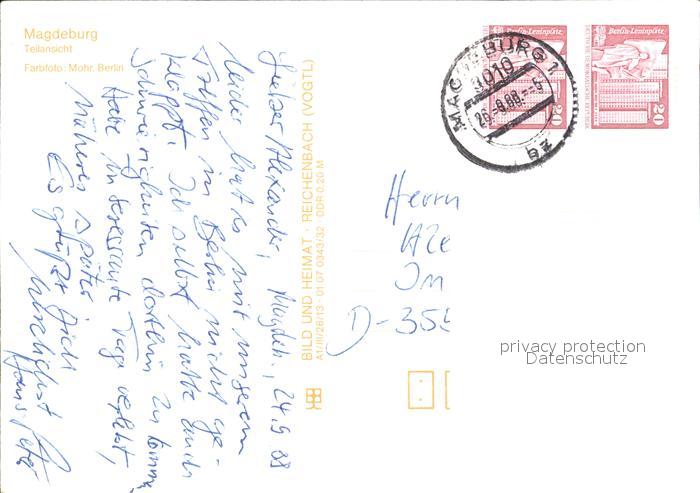 Magdeburg
Teilansicht
Farbfoto: Mohr, Berlin
Lieber Alexander, Magdeb., 24.9.88
leider hat es mit unserem
Treffen in Berlin nicht ge-
klappt. Ich selbst hatte auch
Schwierigkeiten dorthin zu kommen.
Habe interessante Tage verlebt,
Näheres später
Es grüßt Dich
herzlichst
Hans-Peter
BILD UND HEIMAT · REICHENBACH (VOGTL)
A1/III/26/13 · 01 07 0343/32 · DDR 0,20 M
MAGDEBURG 1
3010
26.-9.88.--6
zq
Berlin-Leninplatz
20
Berlin-Leninplatz
20
Herrn
Ale
Im
D-355
privacy protection
Datenschutz